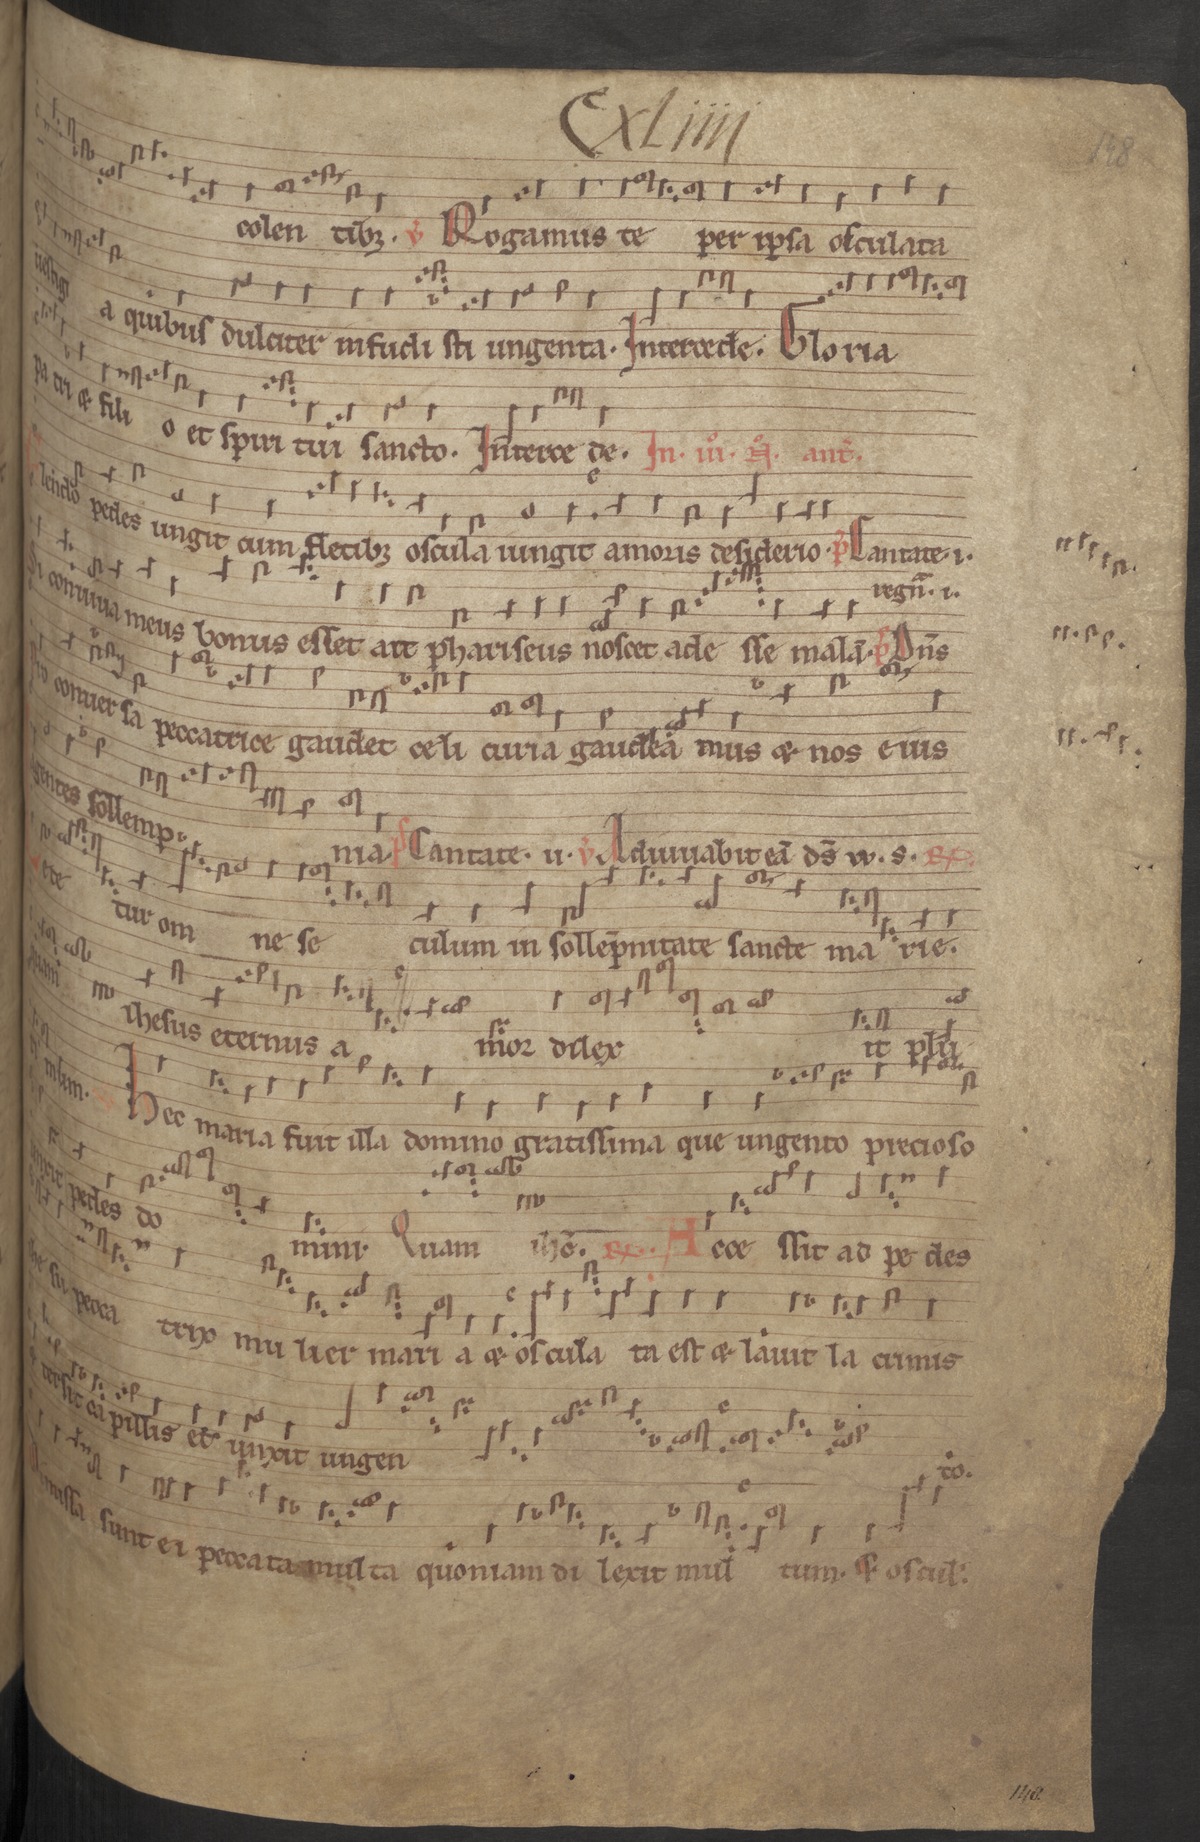 CXLiiii
148
colen tibꝫ. v Rogamus te per ipsa osculata
uestigi a quibus dulciter infudi sti ungenta. Intercede. Gloria
pa tri & fili o et spiri tui sancto. Interce de. In. iii. N. ant.
pedes ungit cum fletibꝫ oscula iungit amoris desiderio. p Cantate. i.
regn̄. i.
Si conuiua meus bonus esset ait phariseus noscet ade sse malā. p Dn̄s
Pro conuer sa peccatrice gaudet celi curia gaudeā mus & nos eius
agentes sollemp nia. p Cantate. ii. v Adiuuabit eā ds̄ w. s. R.
tur om ne se culum in sollēpnitate sancte ma rie.
quam ihesus eternus a mor dilex it plu
ri mum. Hec maria fuit illa domino gratissima que ungento precioso
unxit pedes do mini. Quam ihc̄. R. Acce ssit ad pe des
ihe su pecca trix mu lier mari a & oscula ta est & lauit la crimis
& tersit capillis et unxit ungen
to.
Dimissa sunt ei peccata multa quoniam di lexit mul tum. & oscul:
148.